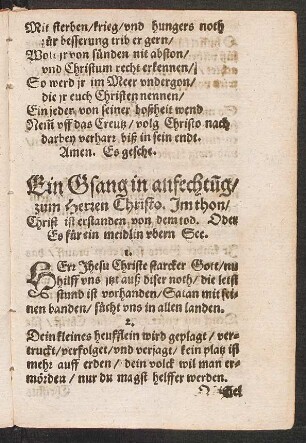 Mit sterben/krieg/vnd hungers noth
für besserung trib er gern/
Wolt jr von sünden nit abston/
vnd Christum recht erkennen/
So werd jr im Meer vndergon/
die jr euch Christen nennen/
Ein jeder von seiner boßheit wend
Nem̃ vff das Creutz/ volg Christo nach
darbey verharr biß in sein endt.
Amen. Es geschehe.
Ein Gsang in anfechtũg/
zum Herren Christo. Im thon/
Christ ist erstanden von dem tod. Oder
Es für ein meidlin vbern See.
1.
HErr Jhesu Christe starcker Gott/nu
hilff vns jtzt auß diser noth/ die letst
stund ist vorhanden/ Satan mit sei-
nen banden/ sücht vns in allen landen.
2.
Dein kleines heufflein wird geplagt/ ver-
truckt/verfolget/vnd verjagt/ kein platz ist
mehr auff erden/ dein volck wil man er-
mörden/ nur du magst helffer werden.